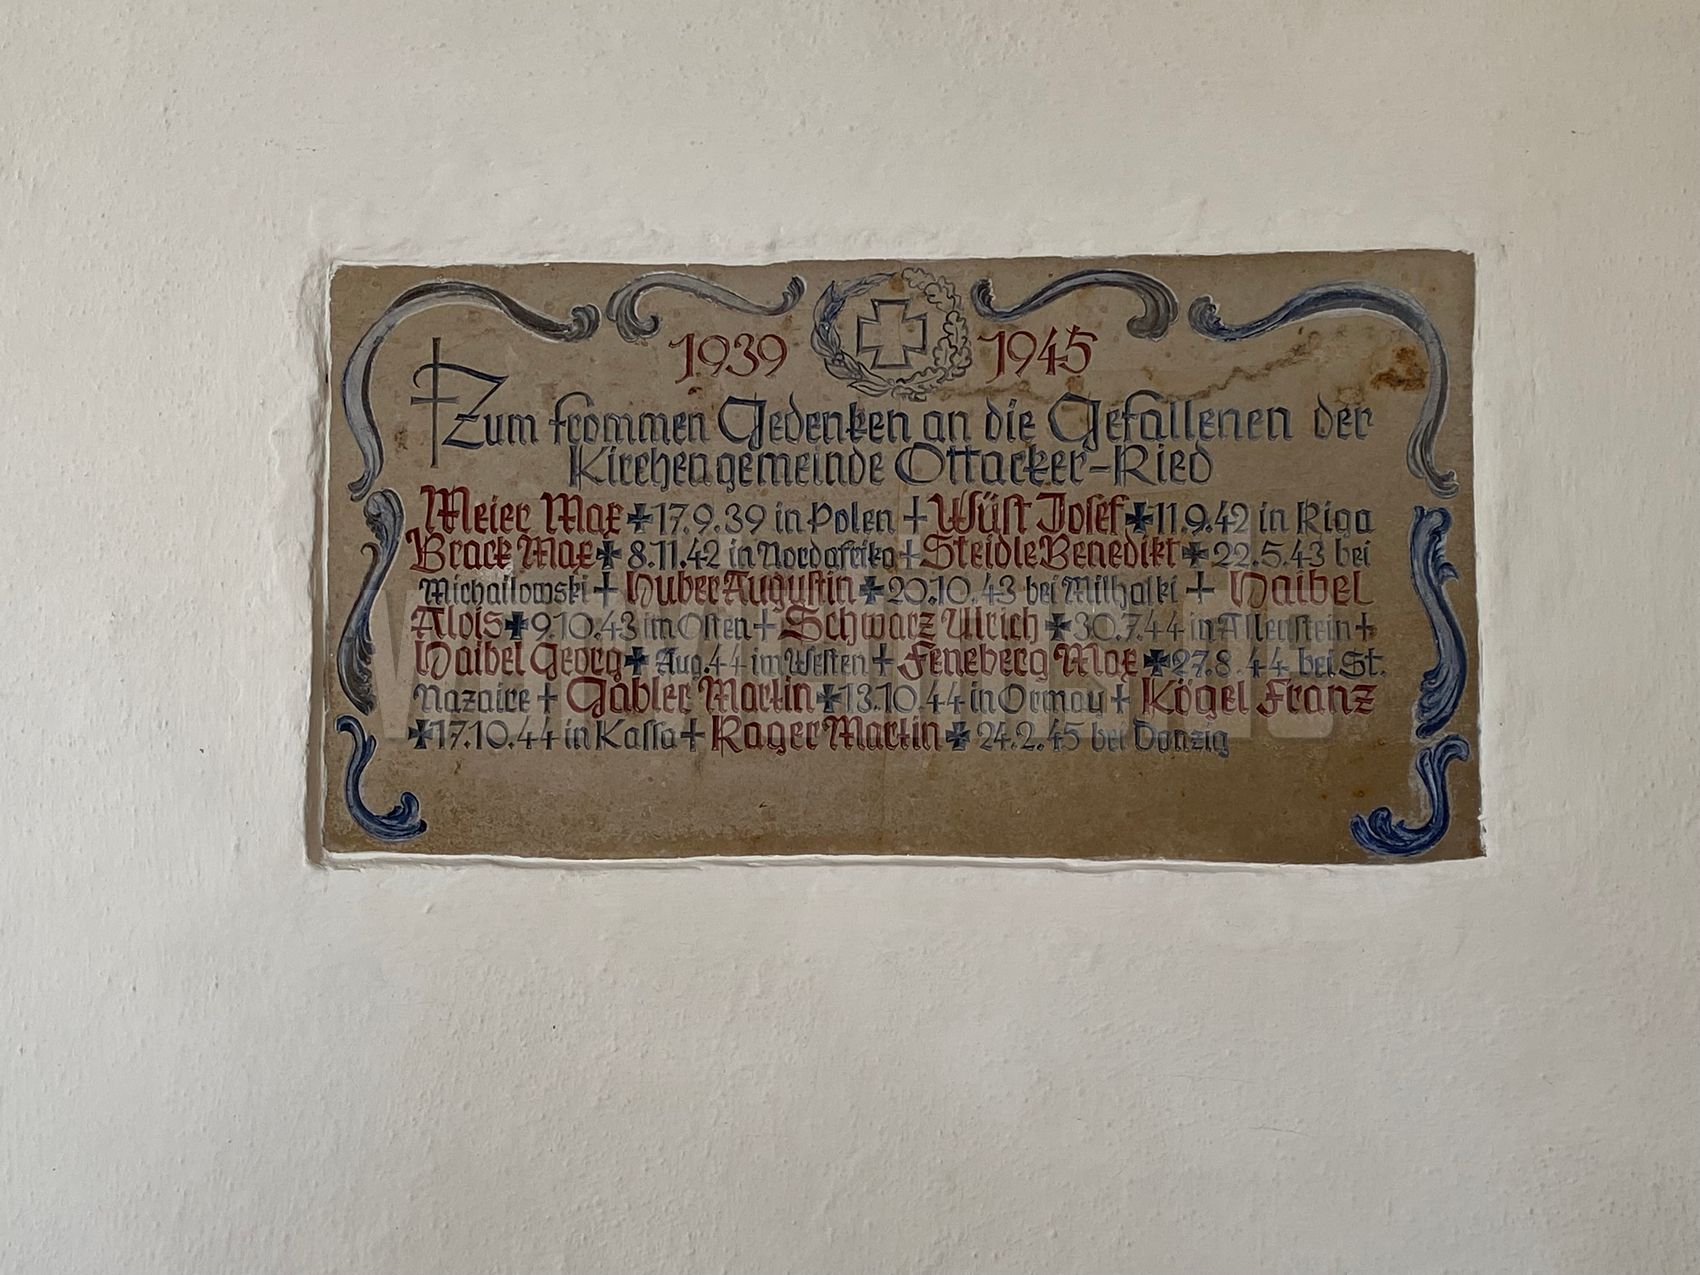 1939 1945
Zum frommen Gedenken an die Gefallenen der
Kirchengemeinde Ottacker-Ried
Meier Max ✠ 17.9.39 in Polen + Wüst Josef ✠ 11.9.42 in Riga
Brack Max ✠ 8.11.42 in Nordafrika + Steidle Benedikt ✠ 22.5.43 bei
Michailowski + Huber Augustin ✠ 20.10.43 bei Milhalki + Haibel
Alois ✠ 9.10.43 im Osten + Schwarz Ulrich ✠ 30.7.44 in Allenstein +
Haibel Georg ✠ Aug.44 im Westen + Feneberg Max ✠ 27.8.44 bei St.
Nazaire + Gabler Martin ✠ 13.10.44 in Ormoy + Kögel Franz
✠ 17.10.44 in Kassa + Rager Martin ✠ 24.2.45 bei Danzig